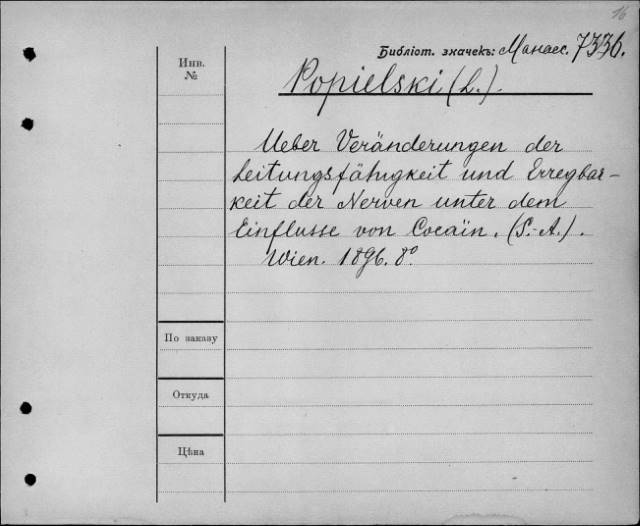 16
Библіот. значекъ: Манасс. 7336.
Инв.
№
Popielski (L.).
Ueber Veränderungen der
Leitungsfähigkeit und Erregbar-
keit der Nerven unter dem
Einflusse von Cocaïn. (S.-A.).
Wien. 1896. 8°
По заказу
Откуда
Цѣна